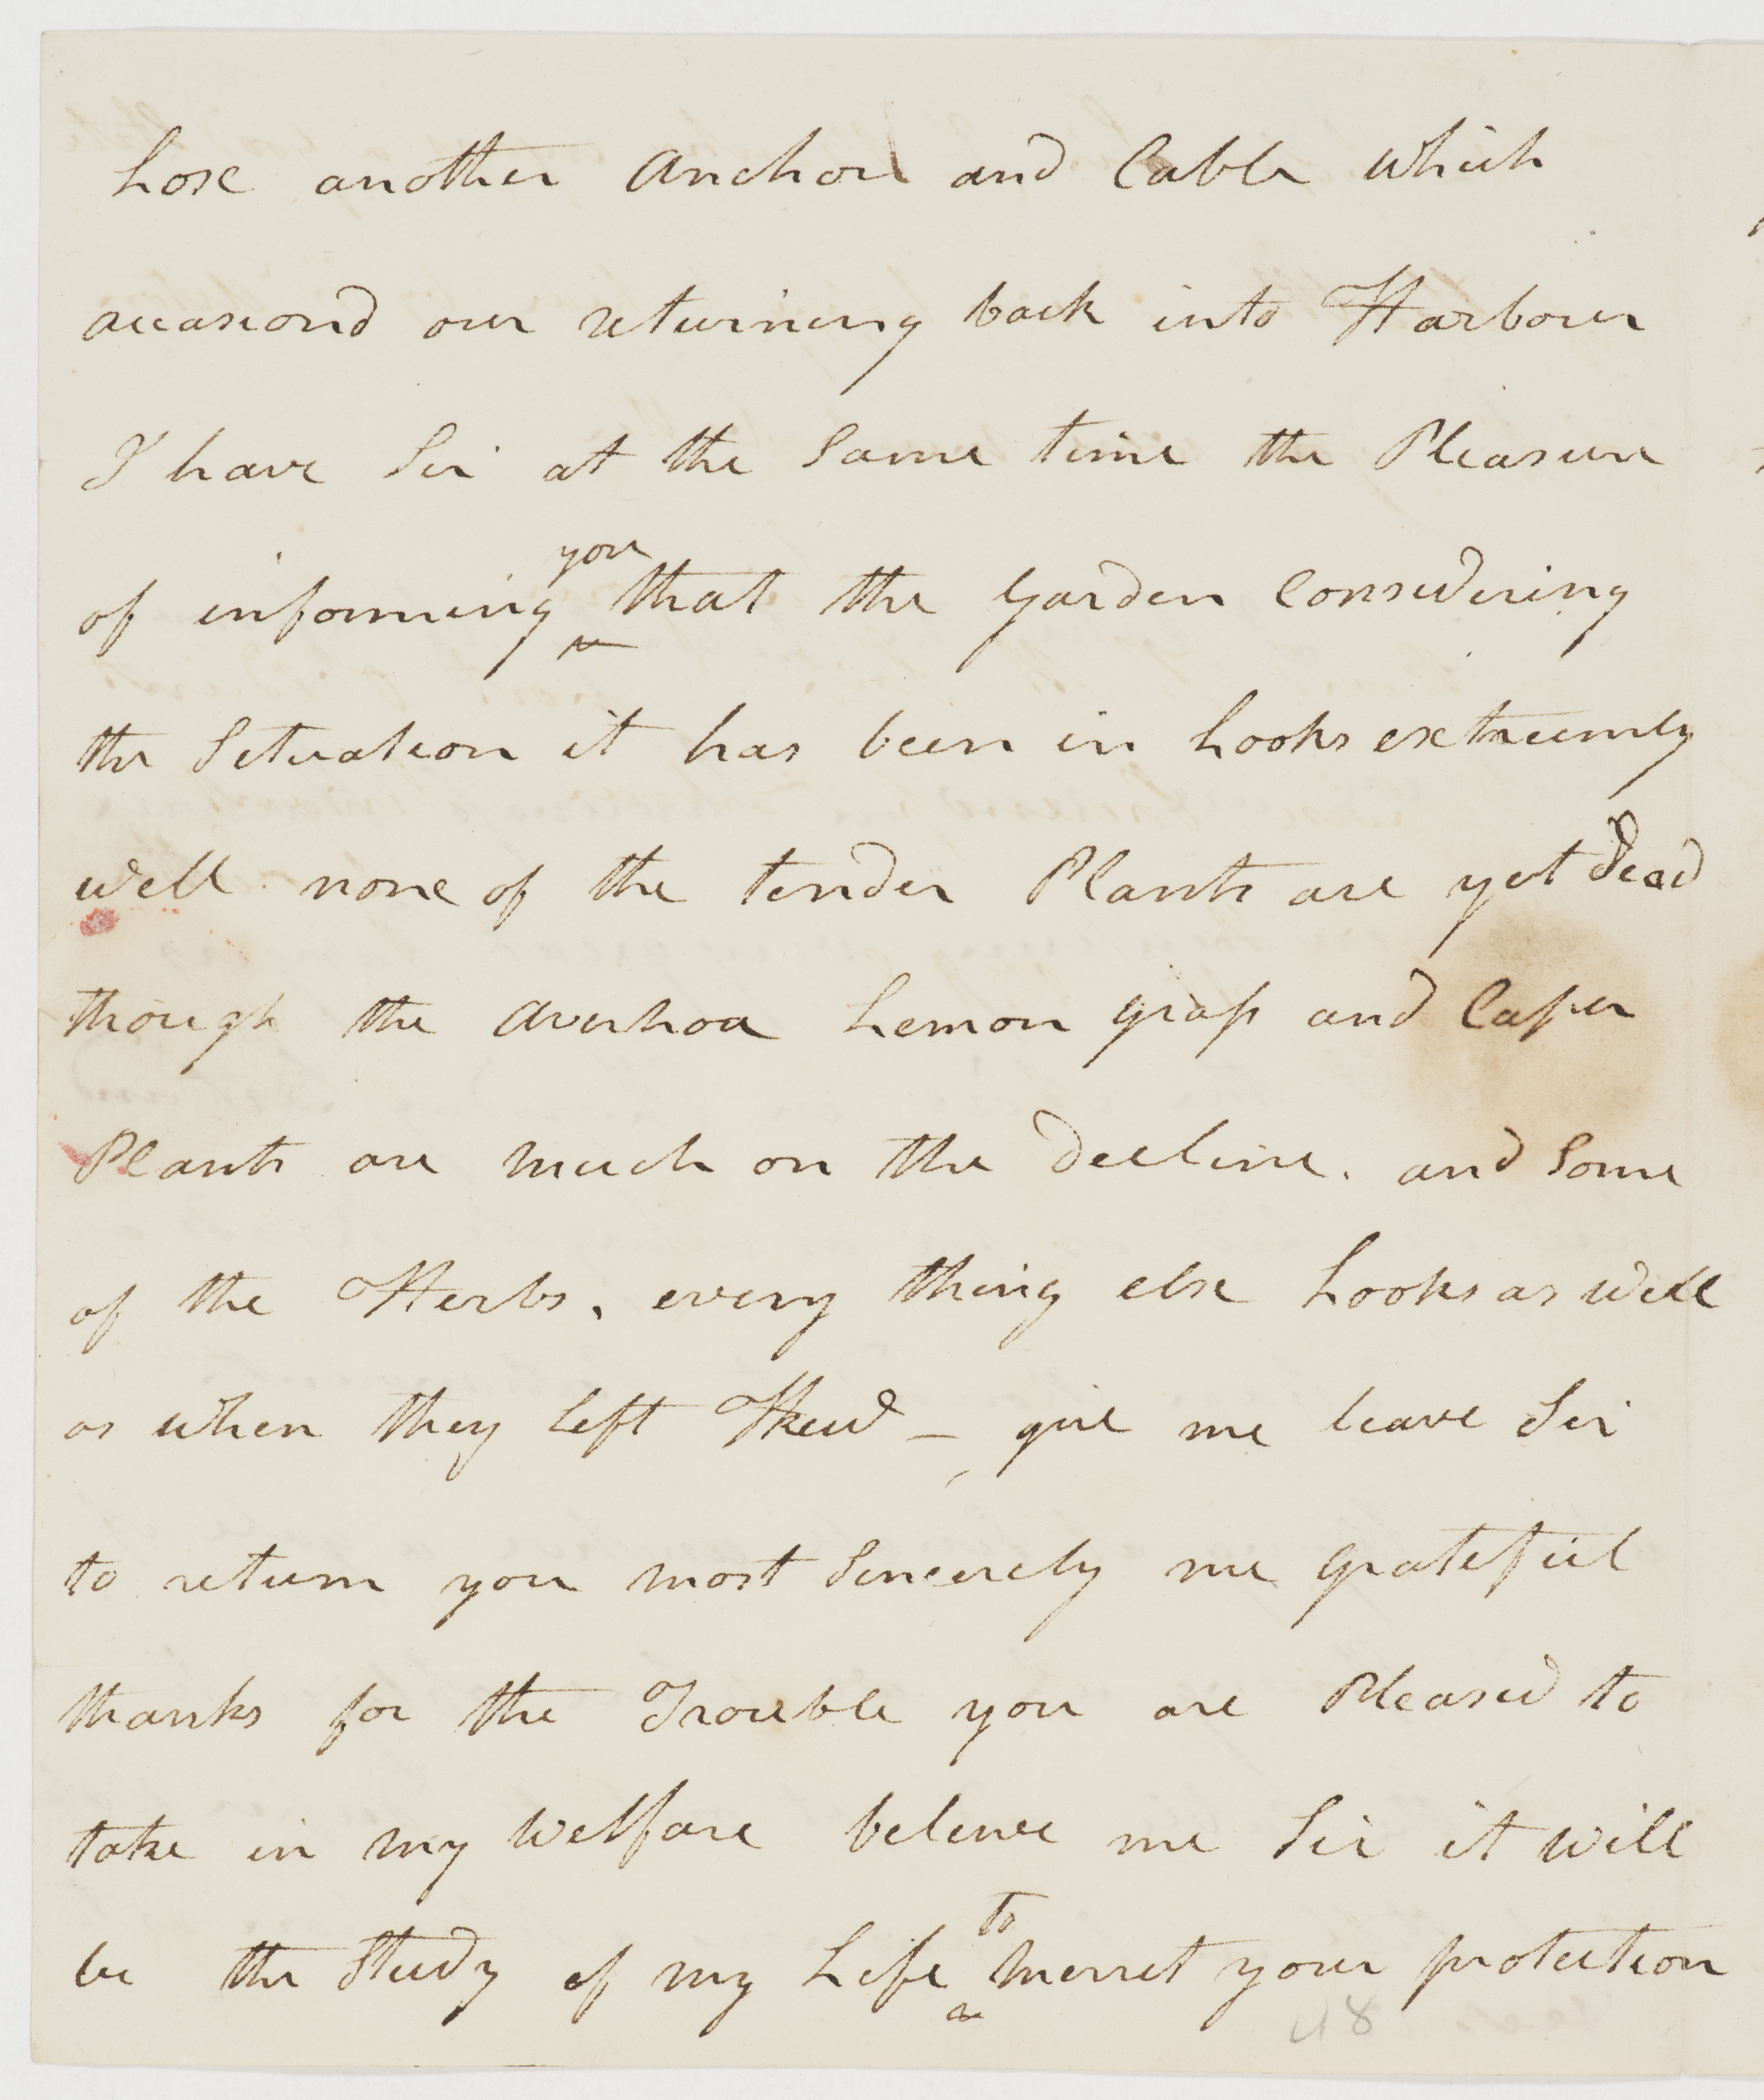 Lose another Anchor and Cable which
occasiond our returning back into Harbour
I have Sir at the Same time the Pleasure
of informing you that the Garden Considering
the Situation it has been in Looks extreemly
well none of the tender Plants are yet Dead
though the Averhoa Lemon grass and Caper
Plants are much on the Decline. and Some
of the Herbs, every thing else Looks as well
as when they left Kew – give me leave Sir
to return you most Sincerely me grateful
thanks for the Trouble you are Pleased to
take in my Welfare beleive me Sir it will
be the Study of my Life to Merret your protection
48